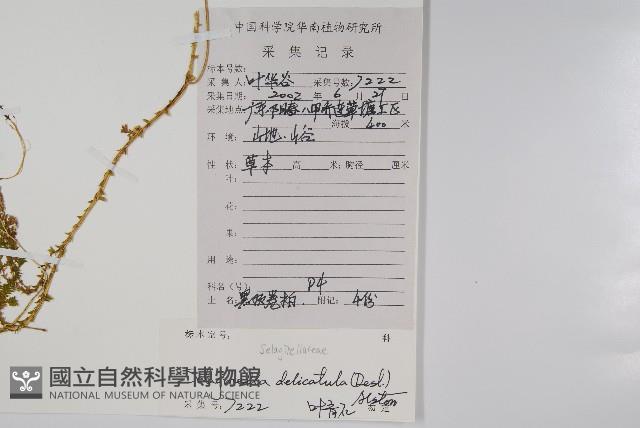 中国科学院华南植物研究所
采集记录
标本号数:
采集人: 叶华谷 采集号数: 7222
采集日期: 2002 年 6 月 27 日
采集地点: 广东阳春八甲
海拔 400 米
环境: 山地.山谷
性状: 草本 高 米; 胸径 厘米
叶:
花:
果:
用途:
科名(号) P4
土名: 卷柏. 附记: 4份
标本室号: 科
Selaginellaceae
delicatula (Desv.)
Alston
采集号: 7222 叶育石 鉴定
國立自然科學博物館
NATIONAL MUSEUM OF NATURAL SCIENCE